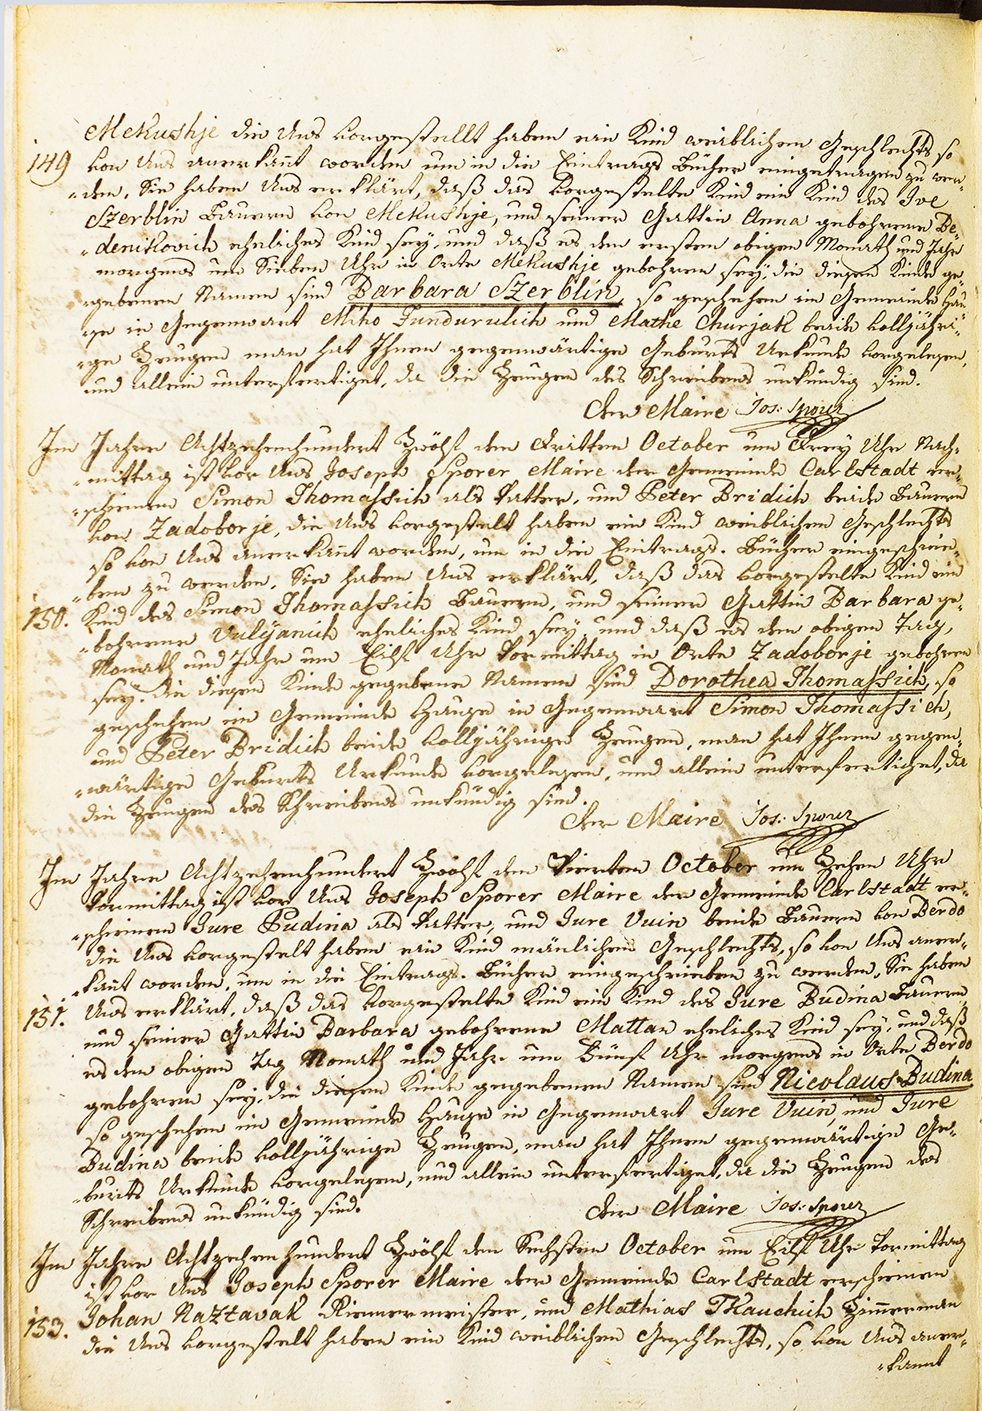 Mekushje die Uns vorgestellt haben ein Kind weiblichen Geschlechts so
149 von Uns anerkant worden um in die Eintrags Bücher eingetragen zu wer-
-den, Sie haben Uns erklärt, daß das vorgestelte Kind ein Kind des Ive
Szerblin Bauern von Mekushje, und seiner Gattin Anna gebohrene Be-
-denikovich eheliches Kind sey, und daß es den ersten obigen Monath und Jahr
morgens um Sieben Uhr in Orte Mekushje gebohren sey; die diesen Kinde ge-
-gebenen Namen sind Barbara Szerblin so geschehen im Gemeinde Hau-
-se in Gegenwart Miko Fundurulich und Mathe Churjak beide volljähri-
-ge Zeugen man hat Ihnen gegenwärtige Geburts Urkunde vorgelesen,
und allein unterfertiget, da die Zeugen des Schreibens unkündig sind.
Der Maire Jos: Sporer
Im Jahre Achtzehenhundert Zwölf den Dritten October um Drey Uhr Nach-
-mittag ist vor Uns Joseph Sporer Maire der Gemeinde Carlstadt er-
-schienen Simon Thomassich als Vatter, und Peter Bridich beide Bauern
von Zadoborje, die Uns vorgestelt haben ein Kind weiblichen Geschlechts
so von Uns anerkant worden, um in die Eintrags-Bücher eingeschrie-
-ben zu werden, Sie haben Uns erklärt, daß das vorgestelte Kind ein
150. Kind des Simon Thomassich Bauern, und seiner Gattin Barbara ge-
-bohrene Vulyanich eheliches Kind sey, und daß es den obigen Tag,
Monath und Jahr um Eilf Uhr Vormittag in Orte Zadoborje gebohren
sey. Die diesen Kinde gegebene Namen sind Dorothea Thomassich, so
geschehen im Gemeinde Hause in Gegenwart Simon Thomassich,
und Peter Bridich beide volljährige Zeugen, man hat Ihnen gegen-
-wärtige Geburts Urkunde vorgelesen, und allein unterfertichet, da
die Zeugen des Schreibens unkündig sind.
Der Maire Jos: Sporer
Im Jahre Achtzehenhundert Zwölf den Vierten October um Zehen Uhr
Vormittag ist vor Uns Joseph Sporer Maire der Gemeinde Carlstadt er-
-schienen Jure Budina als Vatter, und Jure Vuin beide Bauern von Berdo
die Uns vorgestelt haben ein Kind mänlichen Geschlechts, so von Uns aner-
-kant worden, um in die Eintrags-Bücher eingeschrieben zu werden, Sie haben
151. Uns erklärt, daß das vorgestelte Kind ein Kind des Jure Budina Bauern,
und seiner Gattin Barbara gebohrene Mattan eheliches Kind sey, und daß
es den obigen Tag Monath und Jahr um Fünf Uhr morgens in Orte Berdo
gebohren sey; die diesen Kinde gegebenen Namen sind Nicolaus Budina
so geschehen im Gemeinde Hause in Gegenwart Jure Vuin, und Jure
Budina beide volljährige Zeugen, man hat Ihnen gegenwärtige Ge-
-burts Urkunde vorgelesen, und allein unterfertiget, da die Zeugen des
Schreibens unkündig sind.
Der Maire Jos: Sporer
Im Jahre Achtzehenhundert Zwölf den Sechsten October um Eilf Uhr Vormittag
ist vor Uns Joseph Sporer Maire der Gemeinde Carlstadt erschienen
153. Johan Naztavak Riemermeister, und Mathias Tkauchich Zimmerman
die Uns vorgestelt haben ein Kind weiblichen Geschlechts, so von Uns aner-
-kannt